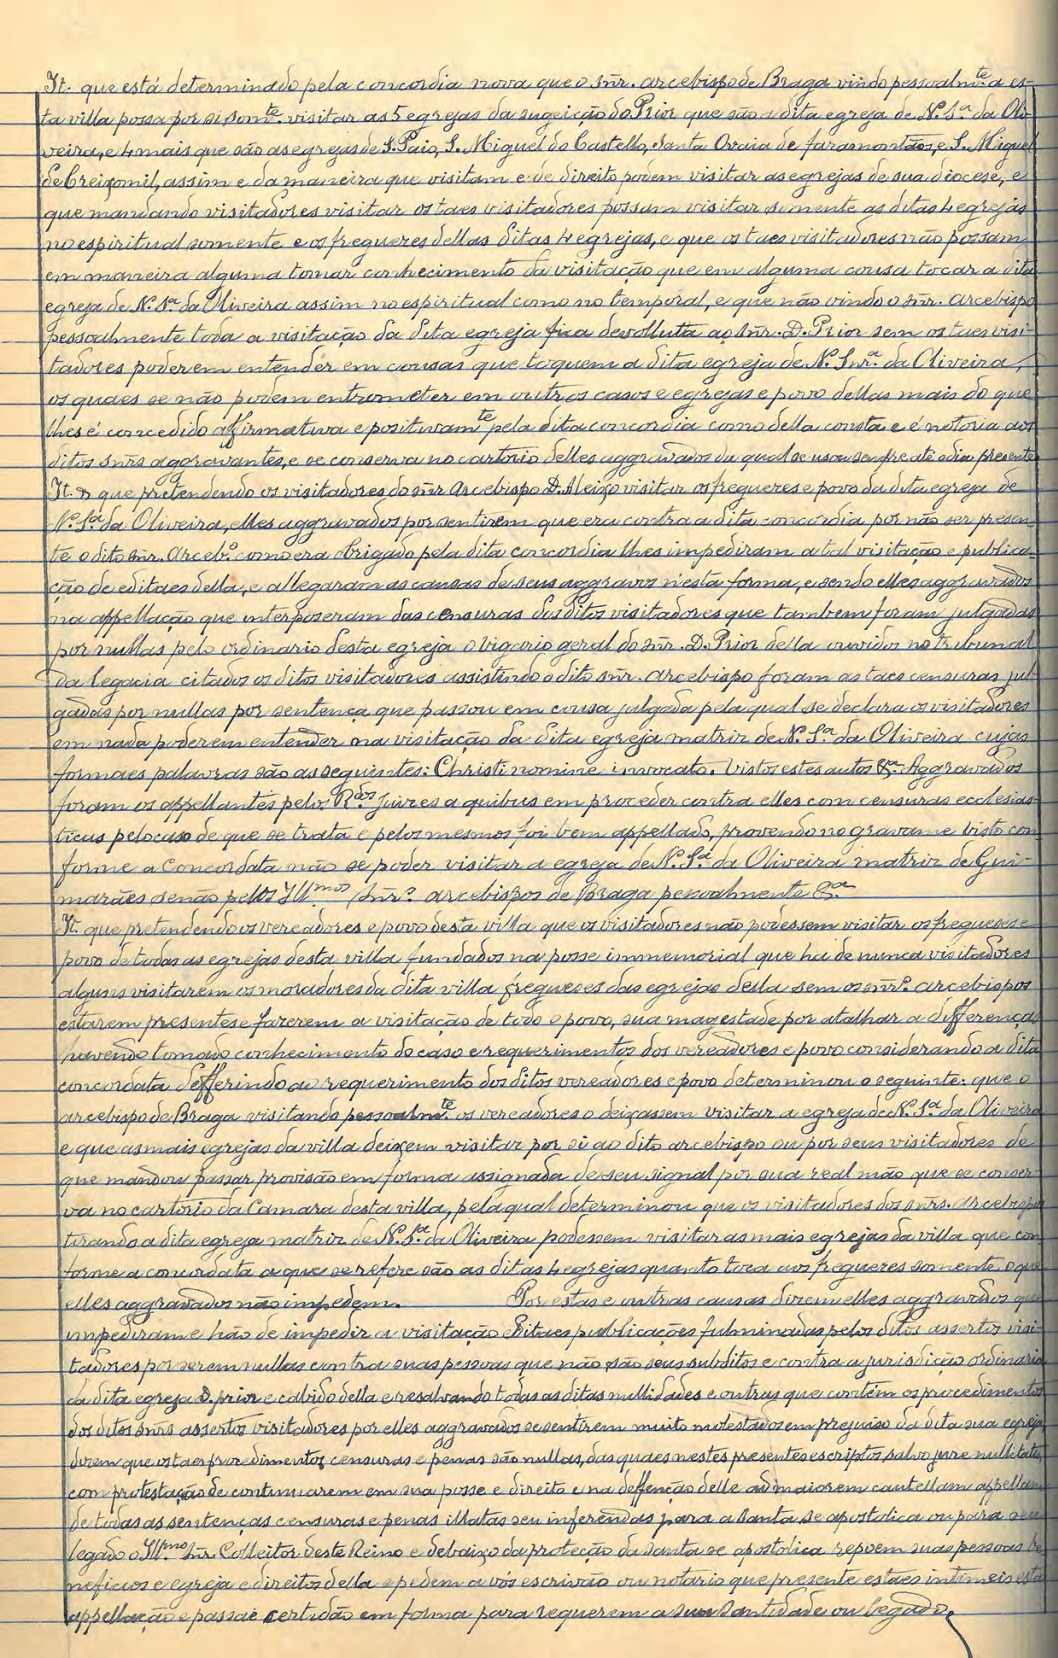 It. que está determinado pela concordia nova que o snr. arcebispo de Braga vindo pessoalm.te a es-
ta villa possa por si som.te visitar as 5 egrejas da sugeição do Prior que são a dita egreja de N.ª S.ª da Oli-
veira, e 4 mais que são as egrejas de S. Paio, S. Miguel do Castello, Santa Ovaia de faramontãos, e S. Miguel
de Creixomil, assim e da maneira que visitam e de direito podem visitar as egrejas de sua diocese, e
que mandando visitadores visitar os taes visitadores possam visitar somente as ditas 4 egrejas
no espiritual somente e os freguezes dellas ditas 4 egrejas, e que os taes visitadores não possam
em maneira alguma tomar conhecimento da visitação que em alguma cousa tocar a dita
egreja de N.ª S.ª da Oliveira assim no espiritual como no temporal, e que não vindo o snr. arcebispo
pessoalmente toda a visitação da dita egreja fica devolluta ao snr. D. Prior sem os taes visi-
tadores poderem entender em cousas que toquem a dita egreja de N. Snr.ª da Oliveira,
os quaes se não podem entrometer em outros casos e egrejas e povo dellas mais do que
lhes é concedido affirmativa e positivam.te pela dita concordia como della consta e é notoria aos
ditos snrs aggravantes, e se conserva no cartorio delles aggravados da qual se usou sempre até o dia presente
It. que pretendendo os visitadores do snr Arcebispo D. Aleixo visitar os freguezes e povo da dita egreja de
N.ª S.ª da Oliveira, elles aggravados por sentirem que era contra a dita concordia por não ser presen-
te o dito snr. Arceb.º como era obrigado pela dita concordia lhes impediram a tal visitação e publica-
ção de editaes della, e allegaram as causas de seus aggravos nesta forma, e sendo elles aggravados
na appellação que interposeram das censuras dos ditos visitadores que tambem foram julgadas
por nullas pelo ordinario desta egreja o vigario geral do snr. D. Prior della ouvidos no tribunal
da legacia citados os ditos visitadores assistindo o dito snr. arcebispo foram as taes censuras jul-
gadas por nullas por sentença que passou em cousa julgada pela qual se declara os visitadores
em nada poderem entender na visitação da dita egreja matriz de N.ª S.ª da Oliveira cujas
formaes palavras são as seguintes: Christi nomine invocato. Vistos estes autos &.ª Aggravados
foram os appellantes pelos R.dos Juizes a quibus em proceder contra elles com censuras ecclesias-
ticas pelo caso de que se trata e pelos mesmos foi bem appellado, provendo no gravame visto con-
forme a Concordata não se poder visitar a egreja de N.ª S.ª da Oliveira matriz de Gui-
marães senão pelos Ill.mos Snr.s arcebispos de Braga pessoalmente &.ª
It. que pretendendo os vereadores e povo desta villa que os visitadores não podessem visitar os freguezes e
povo de todas as egrejas desta villa fundados na posse immemorial que ha de nunca visitadores
alguns visitarem os moradores da dita villa freguezes das egrejas della sem os snr.s arcebispos
estarem presentes e fazerem a visitação de todo o povo, sua magestade por atalhar a differenças
havendo tomado conhecimento do caso e requerimentos dos vereadores e povo considerando a dita
concordata defferindo ao requerimento dos ditos vereadores e povo determinou o seguinte: que o
arcebispo de Braga visitando pessoalm.te os vereadores o deixassem visitar a egreja de N.ª S.ª da Oliveira
e que as mais egrejas da villa deixem visitar por si ao dito arcebispo ou por seus visitadores de
que mandou passar provisão em forma assignada de seu signal por sua real mão que se conser-
va no cartorio da Camara desta villa, pela qual determinou que os visitadores dos snrs. Arcebispos
tirando a dita egreja matriz de N.ª S.ª da Oliveira podessem visitar as mais egrejas da villa que con
forme a concordata a que se refere são as ditas 4 egrejas quanto toca aos freguezes somente o que
elles aggravados não impedem. Por estas e outras causas dizem elles aggravados que
impediram e hão de impedir a visitação Editaes publicações fulminadas pelos ditos assertos visi-
tadores por serem nullas contra suas pessoas que não são seus subditos e contra a jurisdição ordinaria
da dita egreja D. prior e cabido della e resalvando todas as ditas nullidades e outras que contém os procedimentos
dos ditos snrs assertos visitadores por elles aggravados se sentirem muito molestados em prejuiso da dita sua egreja
dizem que os taes procedimentos censuras e penas são nullas, das quaes nestes presentes escriptos salvo jure nullitatis
com protestação de continuarem em sua posse e direito e na deffenção delle ad maiorem cautellam appellam
de todas as sentenças censuras e penas illatas seu inferendas para a santa se apostolica ou para seu
legado o Ill.mo Snr Colleitor deste Reino e debaixo da proteção da santa se apostolica repoem suas pessoas be
neficios e egreja e direitos della e pedem a vós escrivão ou notario que presente estaes intimeis esta
appellação e passae certidão em forma para requerem a sua Santidade ou legado.